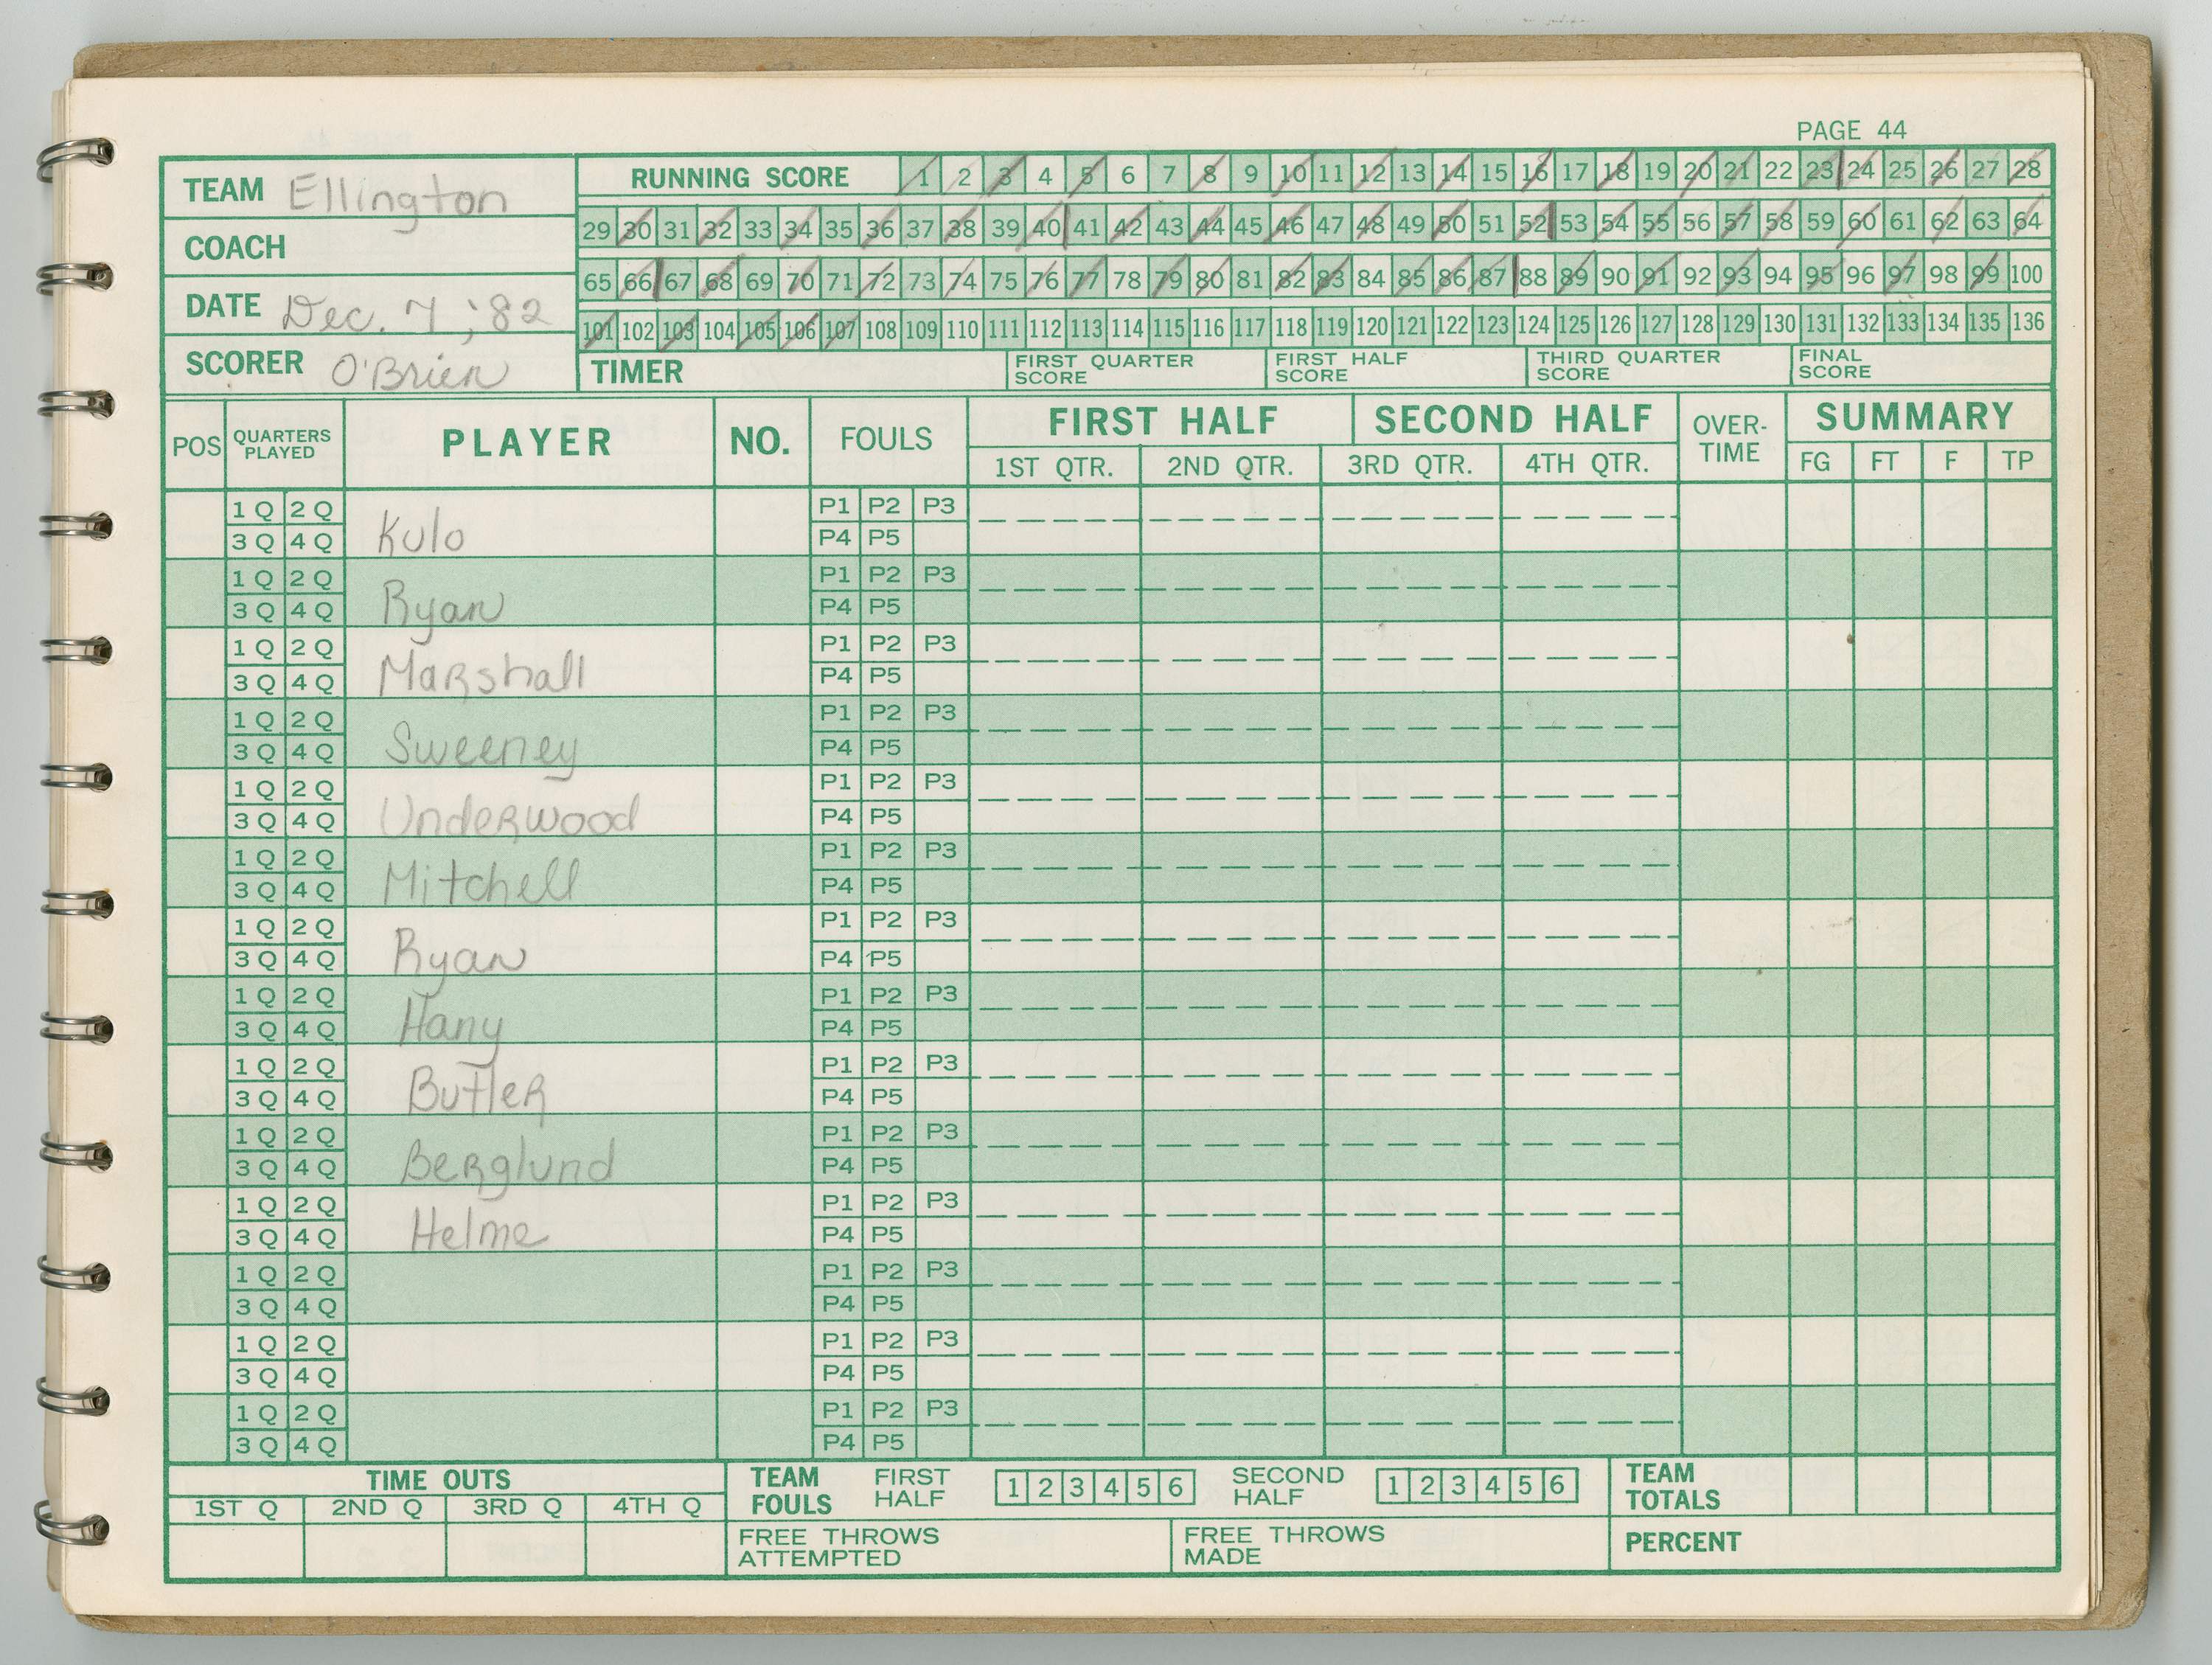 PAGE 44
TEAM Ellington
RUNNING SCORE 1 2 3 4 5 6 7 8 9 10 11 12 13 14 15 16 17 18 19 20 21 22 23 24 25 26 27 28
29 30 31 32 33 34 35 36 37 38 39 40 41 42 43 44 45 46 47 48 49 50 51 52 53 54 55 56 57 58 59 60 61 62 63 64
COACH
65 66 67 68 69 70 71 72 73 74 75 76 77 78 79 80 81 82 83 84 85 86 87 88 89 90 91 92 93 94 95 96 97 98 99 100
DATE Dec. 7, '82
101 102 103 104 105 106 107 108 109 110 111 112 113 114 115 116 117 118 119 120 121 122 123 124 125 126 127 128 129 130 131 132 133 134 135 136
SCORER O'Brien
TIMER
FIRST QUARTER
SCORE
FIRST HALF
SCORE
THIRD QUARTER
SCORE
FINAL
SCORE
POS
QUARTERS
PLAYED
PLAYER
NO.
FOULS
FIRST HALF
SECOND HALF
1ST QTR. 2ND QTR. 3RD QTR. 4TH QTR.
OVER-
TIME
SUMMARY
FG FT F TP
1 Q 2 Q P1 P2 P3
3 Q 4 Q Kulo P4 P5
1 Q 2 Q P1 P2 P3
3 Q 4 Q Ryan P4 P5
1 Q 2 Q P1 P2 P3
3 Q 4 Q Marshall P4 P5
1 Q 2 Q P1 P2 P3
3 Q 4 Q Sweeney P4 P5
1 Q 2 Q P1 P2 P3
3 Q 4 Q Underwood P4 P5
1 Q 2 Q P1 P2 P3
3 Q 4 Q Mitchell P4 P5
1 Q 2 Q P1 P2 P3
3 Q 4 Q Ryan P4 P5
1 Q 2 Q P1 P2 P3
3 Q 4 Q Hany P4 P5
1 Q 2 Q P1 P2 P3
3 Q 4 Q Butler P4 P5
1 Q 2 Q P1 P2 P3
3 Q 4 Q Berglund P4 P5
1 Q 2 Q P1 P2 P3
3 Q 4 Q Helme P4 P5
1 Q 2 Q P1 P2 P3
3 Q 4 Q P4 P5
1 Q 2 Q P1 P2 P3
3 Q 4 Q P4 P5
1 Q 2 Q P1 P2 P3
3 Q 4 Q P4 P5
TIME OUTS
1ST Q 2ND Q 3RD Q 4TH Q
TEAM
FOULS
FIRST
HALF
1 2 3 4 5 6
SECOND
HALF
1 2 3 4 5 6
TEAM
TOTALS
FREE THROWS
ATTEMPTED
FREE THROWS
MADE
PERCENT